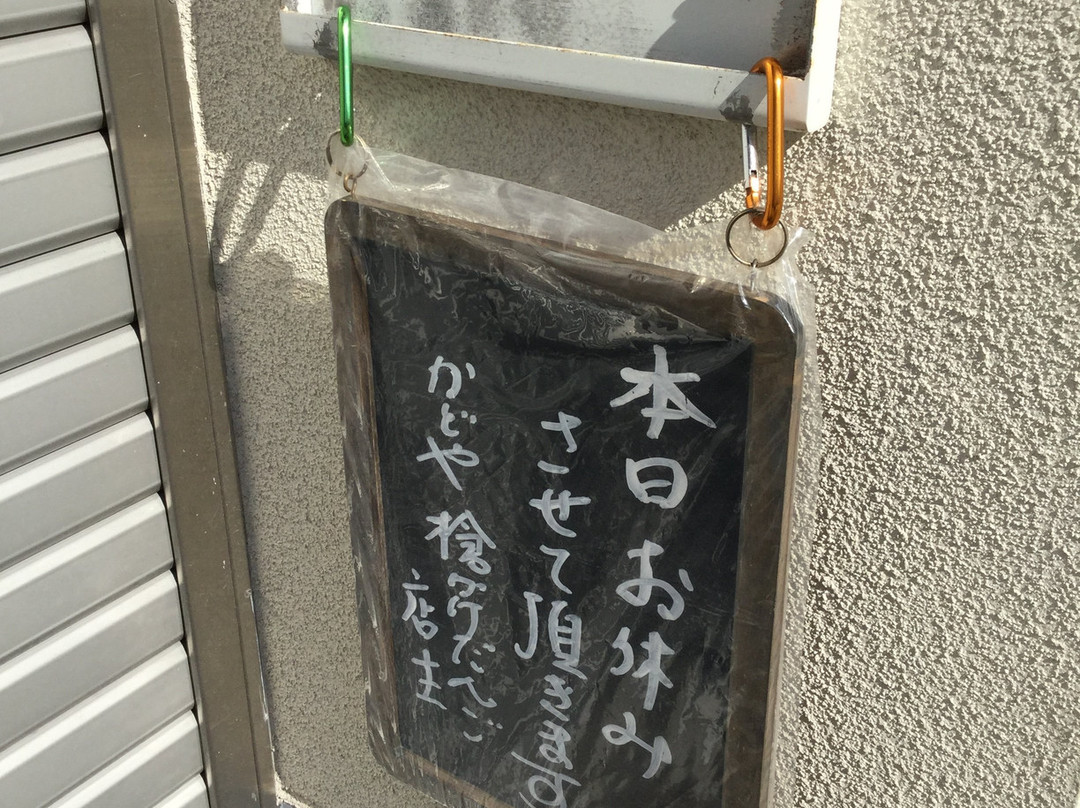 本日お休み
させて頂きます
かどや 槍かけだんご
店主